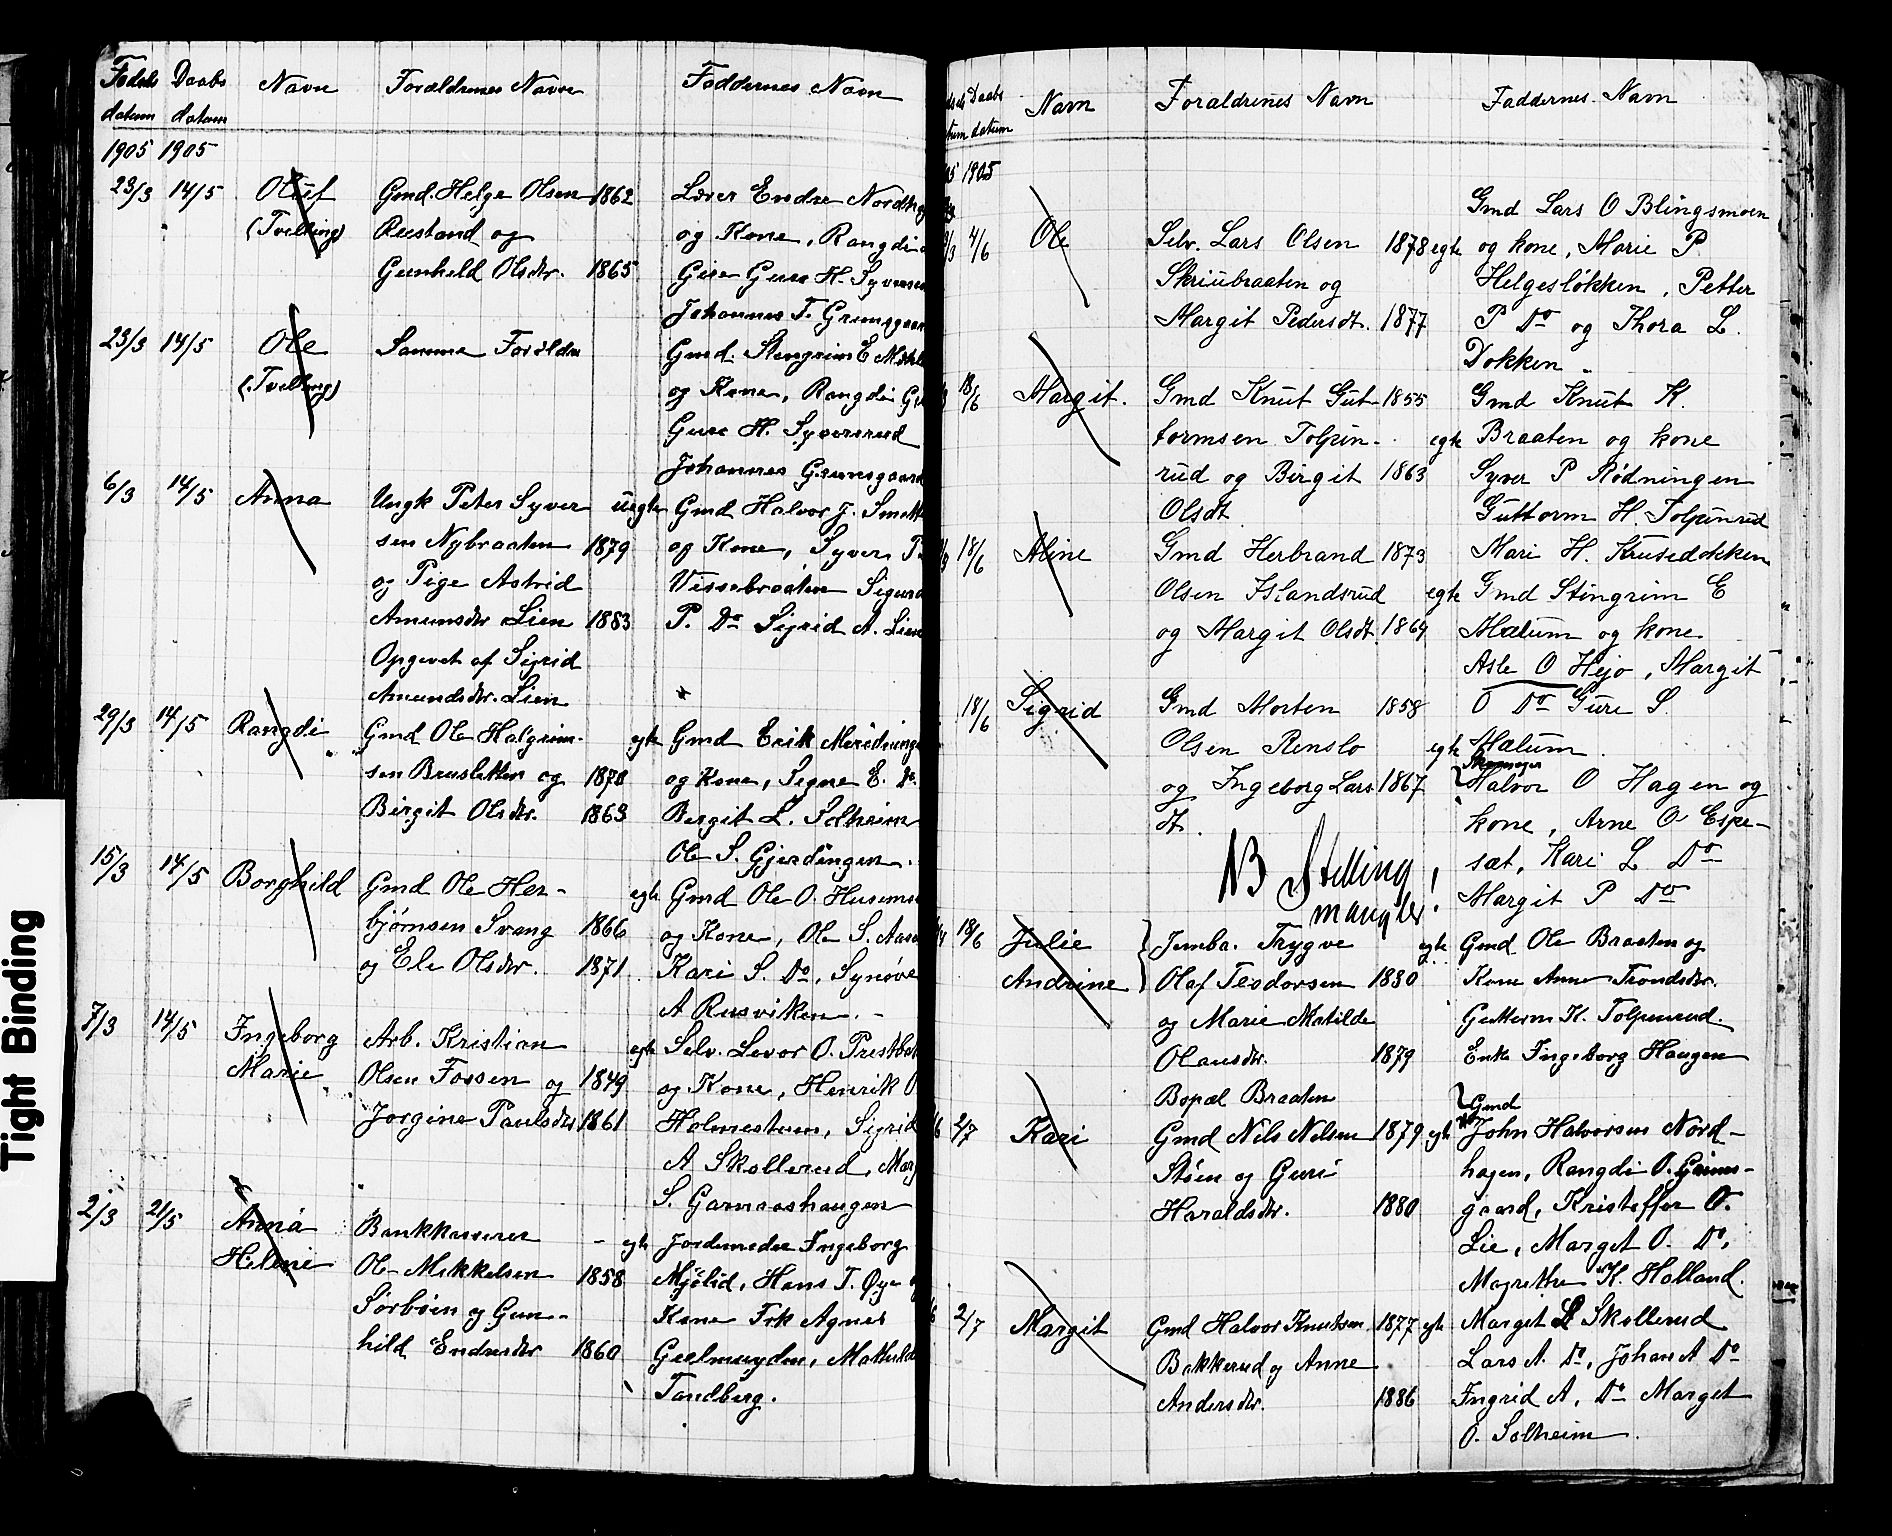 Fødsels Daabs Navn Forældrenes Navn Faddernes Navn
datum datum
1905 1905
23/3 14/5 Oluf Gmd. Helge Olsen 1862 Lærer Endre Nordha
(Tvilling) Rustand og og Kone, Rangdi
Gunhild Olsdtr. 1865 Guro H. Syvers
Johannes T. Grimsgaar
23/3 14/5 Ole Samme Foreldre Gmd. Stengrim E
(Tvilling) og Kone, Rangdi
Guro H. Syversrud
Johannes Grimsgaard
6/3 14/5 Anna Ungk Peter Syver uegte Gmd Halvor J.
sen Nybraaten 1879 og Kone, Syver P
og Pige Astrid Vissebraaten Sigurd
Amunsdtr Lien 1883 P. Do Sigrid A. Lien
Opgevet af Sigrid
Amundsdtr. Lien
29/3 14/5 Rangdi Gmd Ole Halgrim- egte Gmd Erik
sen Brusletten og 1878 og Kone, Signe E. Do
Birgit Olsdtr. 1863 Birgit L. Solheim
Ole S. Gjerdingen.
15/3 14/5 Borghild Gmd Ole Her- egte Gmd Ole O.
bjørnsen Svang 1866 og Kone, Ole S.
og Eli Olsdtr. 1871 Kari S. Do, Synøve
A Rusviken.
7/3 14/5 Ingeborg Arb. Kristian egte Selv. Levor O.
Marie Olsen Fossen og 1849 og Kone, Henrik O
Jorgine Paulsdtr 1861 Holmestuen, Sigrid
A Skollerud,
S. Garnaashaugen
2/3 21/5 Anna Bankkasserer - egte Jordemoder Ingeborg
Helene Ole Mikkelsen 1858 Mjølid, Hans T. Øye
Sørbøen og Gun- Kone Frk Agnes
hild Endresdtr 1860 Geelmuyden, Mathilde
Tandberg.
Daabs Navn Forældrenes Navn Faddernes Navn
datum
1905
Gmd Lars O Blingsmoen
4/6 Ole Selv. Lars Olsen 1878 egte og kone, Marie P.
Skriubraaten og Helgesløkken, Petter
Margit Pedersdt. 1877 P Do og Thora L.
Dokken.
18/6 Margit. Gmd Knut Gut- 1855 Gmd Knut K.
tormsen Tolpin- egte Braaten og kone
rud og Birgit 1863 Syver P Rødningen
Olsdt Guttorm H. Tolpinrud
18/6 Aline Gmd Herbrand 1873 Mari H. Krusedokken
Olsen Islandsrud egte Gmd Stingrim E
og Margit Olsdt. 1869 Mælum og kone
Asle O Hejo, Margit
18/6 Sigrid Gmd Morten 1858 O Do Guri S
Olsen Renslo egte Mælum.
og Ingeborg Lars 1867 Halvor O Hagen og
dt. kone, Arne O Espe-
sæt, Kari L Do
NB Stilling Margit P Do
mangler!
18/6 Julie Jernba. Trygve egte Gmd Ole Braaten og
Andrine Olaf Teodorsen 1880 Kone Anne Trondsdtr.
og Marie Matilde Guttorm K. Tolpinrud.
Olausdtr. 1879 Enke Ingeborg Haugen
Bopæl Braaten
Gmd
2/7 Kari Gmd Nils Nilsen 1879 egte John Halvorsen Nord-
Støen og Guri hagen, Rangdi O. Grims-
Haraldsdtr. 1880 gaard, Kristoffer O.
Lie, Marget O. Do,
Magrethe K. Holland.
2/7 Margit Gmd Halvor Knutsen 1877 egte Marget L Skollerud
Bakkerud og Anne Lars A. Do, Johan A Do
Andersdtr. 1886 Ingrid A, Do Marget
O. Solheim.
Tight Binding